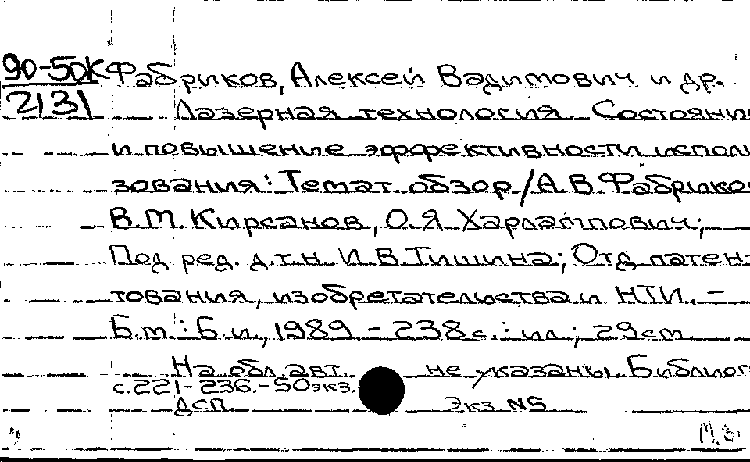 90-50К Фабриков, Алексей Вадимович и др.
2131 Лазерная технология. Состояни
и повышение эффективности исполь
зования: Темат. обзор / А.В. Фабриков
В.М. Кирсанов, О.Я. Харлампович;
Под ред. д.т.н. И.В. Тишина; Отд. патен-
тования, изобретательства и НТИ. -
Б.м.: Б.и., 1989 - 238 с.: ил.; 29 см
На обл. авт. не указаны. Библиог
с. 221-236. - 50 экз.
ДСП Экз. №5